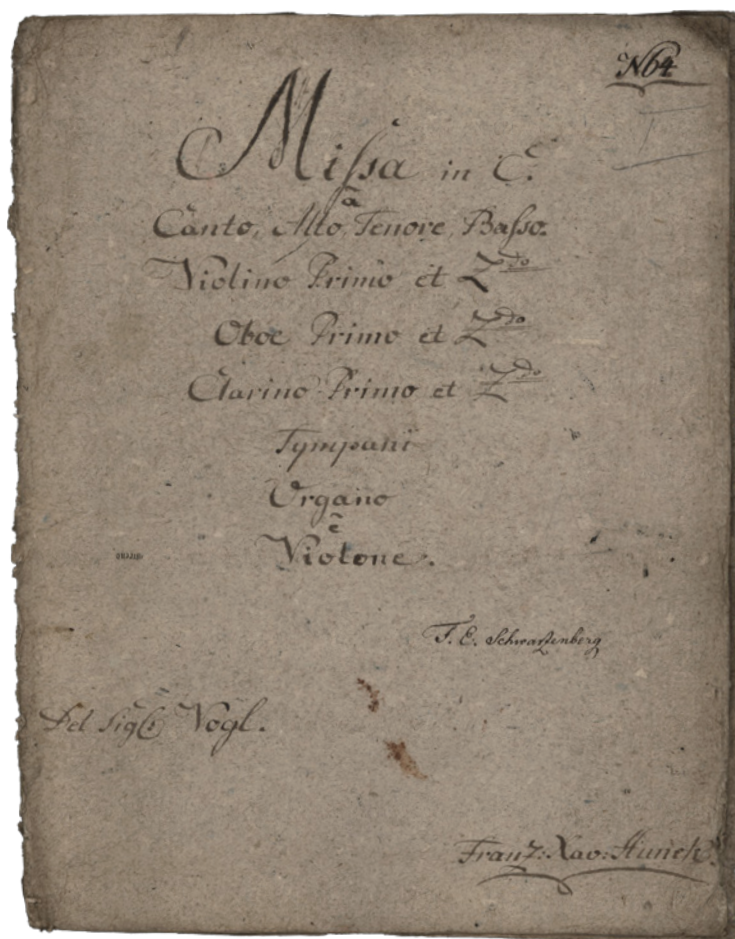 N64
Missa in C.
à
Canto, Alto, Tenore, Basso.
Violino Primo et 2do
Oboe Primo et 2do
Clarino Primo et 2do
Tympani
Organo
è
Violone.
F. E. Schwartzenberg
Del Sig: Vogl.
Franz: Xav: